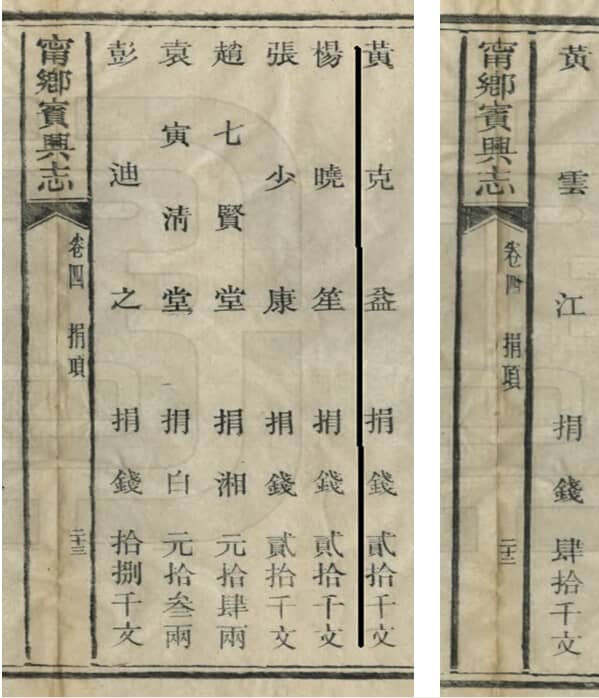 黃雲江捐錢肆拾千文
甯鄉賓興志
卷四 捐項
二十二
黃克益捐錢貳拾千文
楊曉笙捐錢貳拾千文
張少康捐錢貳拾千文
趙七賢堂捐湘元拾肆兩
袁寅清堂捐白元拾叁兩
彭迪之捐錢拾捌千文
甯鄉賓興志
卷四 捐項
二十三